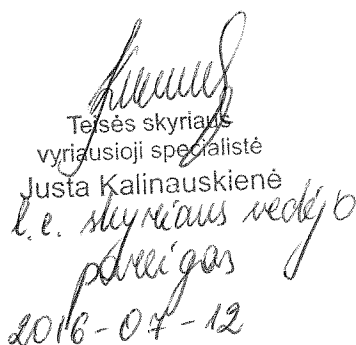 Teisės skyriaus
vyriausioji specialistė
Justa Kalinauskienė
l. e. skyriaus vedėjo
pareigas
2016-07-12